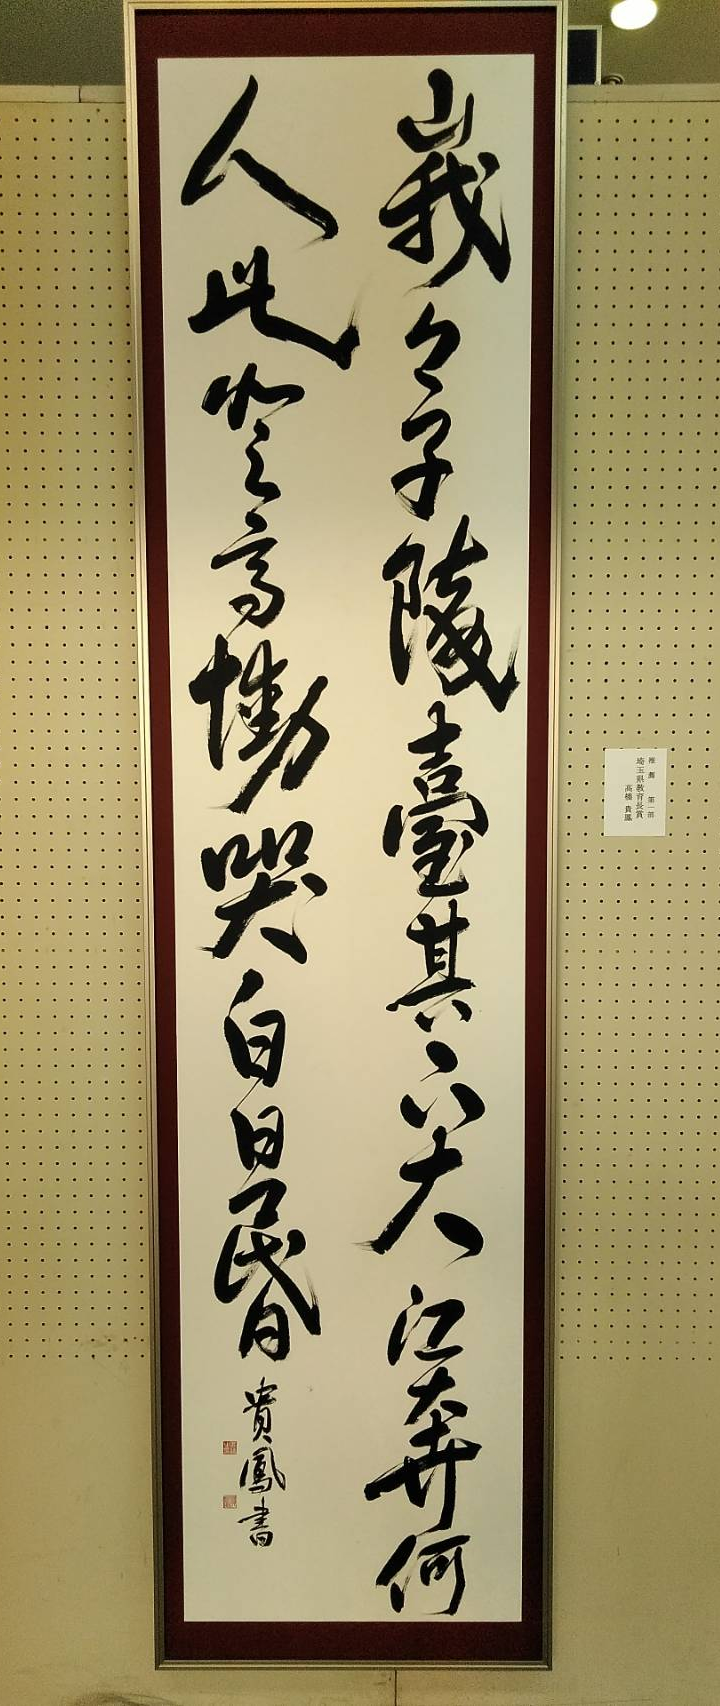 峩々子陵臺其下大江奔何
人此登高慟哭白日昏
貴鳳書
推薦 第一部
埼玉県教育長賞
高橋貴鳳